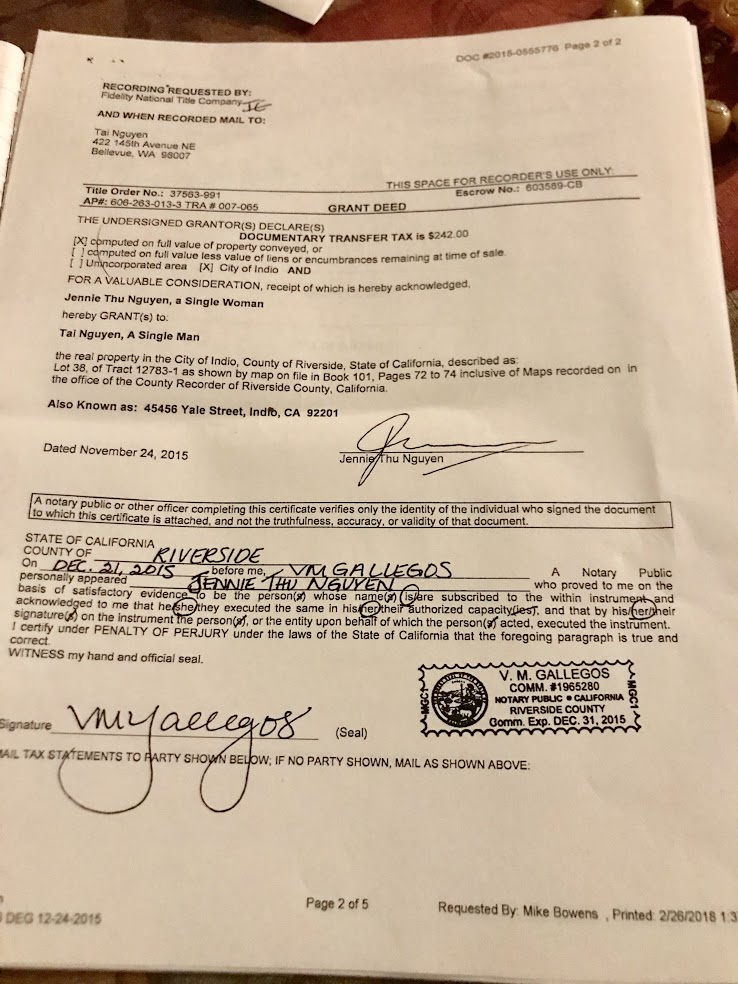 DOC #2015-0555776 Page 2 of 2
RECORDING REQUESTED BY:
Fidelity National Title Company
AND WHEN RECORDED MAIL TO:
Tai Nguyen
422 145th Avenue NE
Bellevue, WA 98007
THIS SPACE FOR RECORDER'S USE ONLY:
Title Order No.: 37563-991 Escrow No.: 603589-CB
AP#: 606-263-013-3 TRA # 007-065 GRANT DEED
THE UNDERSIGNED GRANTOR(S) DECLARE(S)
DOCUMENTARY TRANSFER TAX is $242.00
[X] computed on full value of property conveyed, or
[ ] computed on full value less value of liens or encumbrances remaining at time of sale.
[ ] Unincorporated area [X] City of Indio AND
FOR A VALUABLE CONSIDERATION, receipt of which is hereby acknowledged,
Jennie Thu Nguyen, a Single Woman
hereby GRANT(s) to:
Tai Nguyen, A Single Man
the real property in the City of Indio, County of Riverside, State of California, described as:
Lot 38, of Tract 12783-1 as shown by map on file in Book 101, Pages 72 to 74 inclusive of Maps recorded on in
the office of the County Recorder of Riverside County, California.
Also Known as: 45456 Yale Street, Indio, CA 92201
Dated November 24, 2015
Jennie Thu Nguyen
A notary public or other officer completing this certificate verifies only the identity of the individual who signed the document
to which this certificate is attached, and not the truthfulness, accuracy, or validity of that document.
STATE OF CALIFORNIA
COUNTY OF RIVERSIDE
On DEC. 21, 2015 before me, VM GALLEGOS A Notary Public
personally appeared JENNIE THU NGUYEN who proved to me on the
basis of satisfactory evidence to be the person(s) whose name(s) is/are subscribed to the within instrument and
acknowledged to me that he/she/they executed the same in his/her/their authorized capacity(ies), and that by his/her/their
signature(s) on the instrument the person(s), or the entity upon behalf of which the person(s) acted, executed the instrument.
I certify under PENALTY OF PERJURY under the laws of the State of California that the foregoing paragraph is true and
correct.
WITNESS my hand and official seal.
V. M. GALLEGOS
COMM. #1965280
NOTARY PUBLIC • CALIFORNIA
RIVERSIDE COUNTY
Comm. Exp. DEC. 31, 2015
MGC1
MGC1
Signature VMGallegos (Seal)
MAIL TAX STATEMENTS TO PARTY SHOWN BELOW; IF NO PARTY SHOWN, MAIL AS SHOWN ABOVE:
DEG 12-24-2015
Page 2 of 5
Requested By: Mike Bowens , Printed: 2/26/2018 1:3